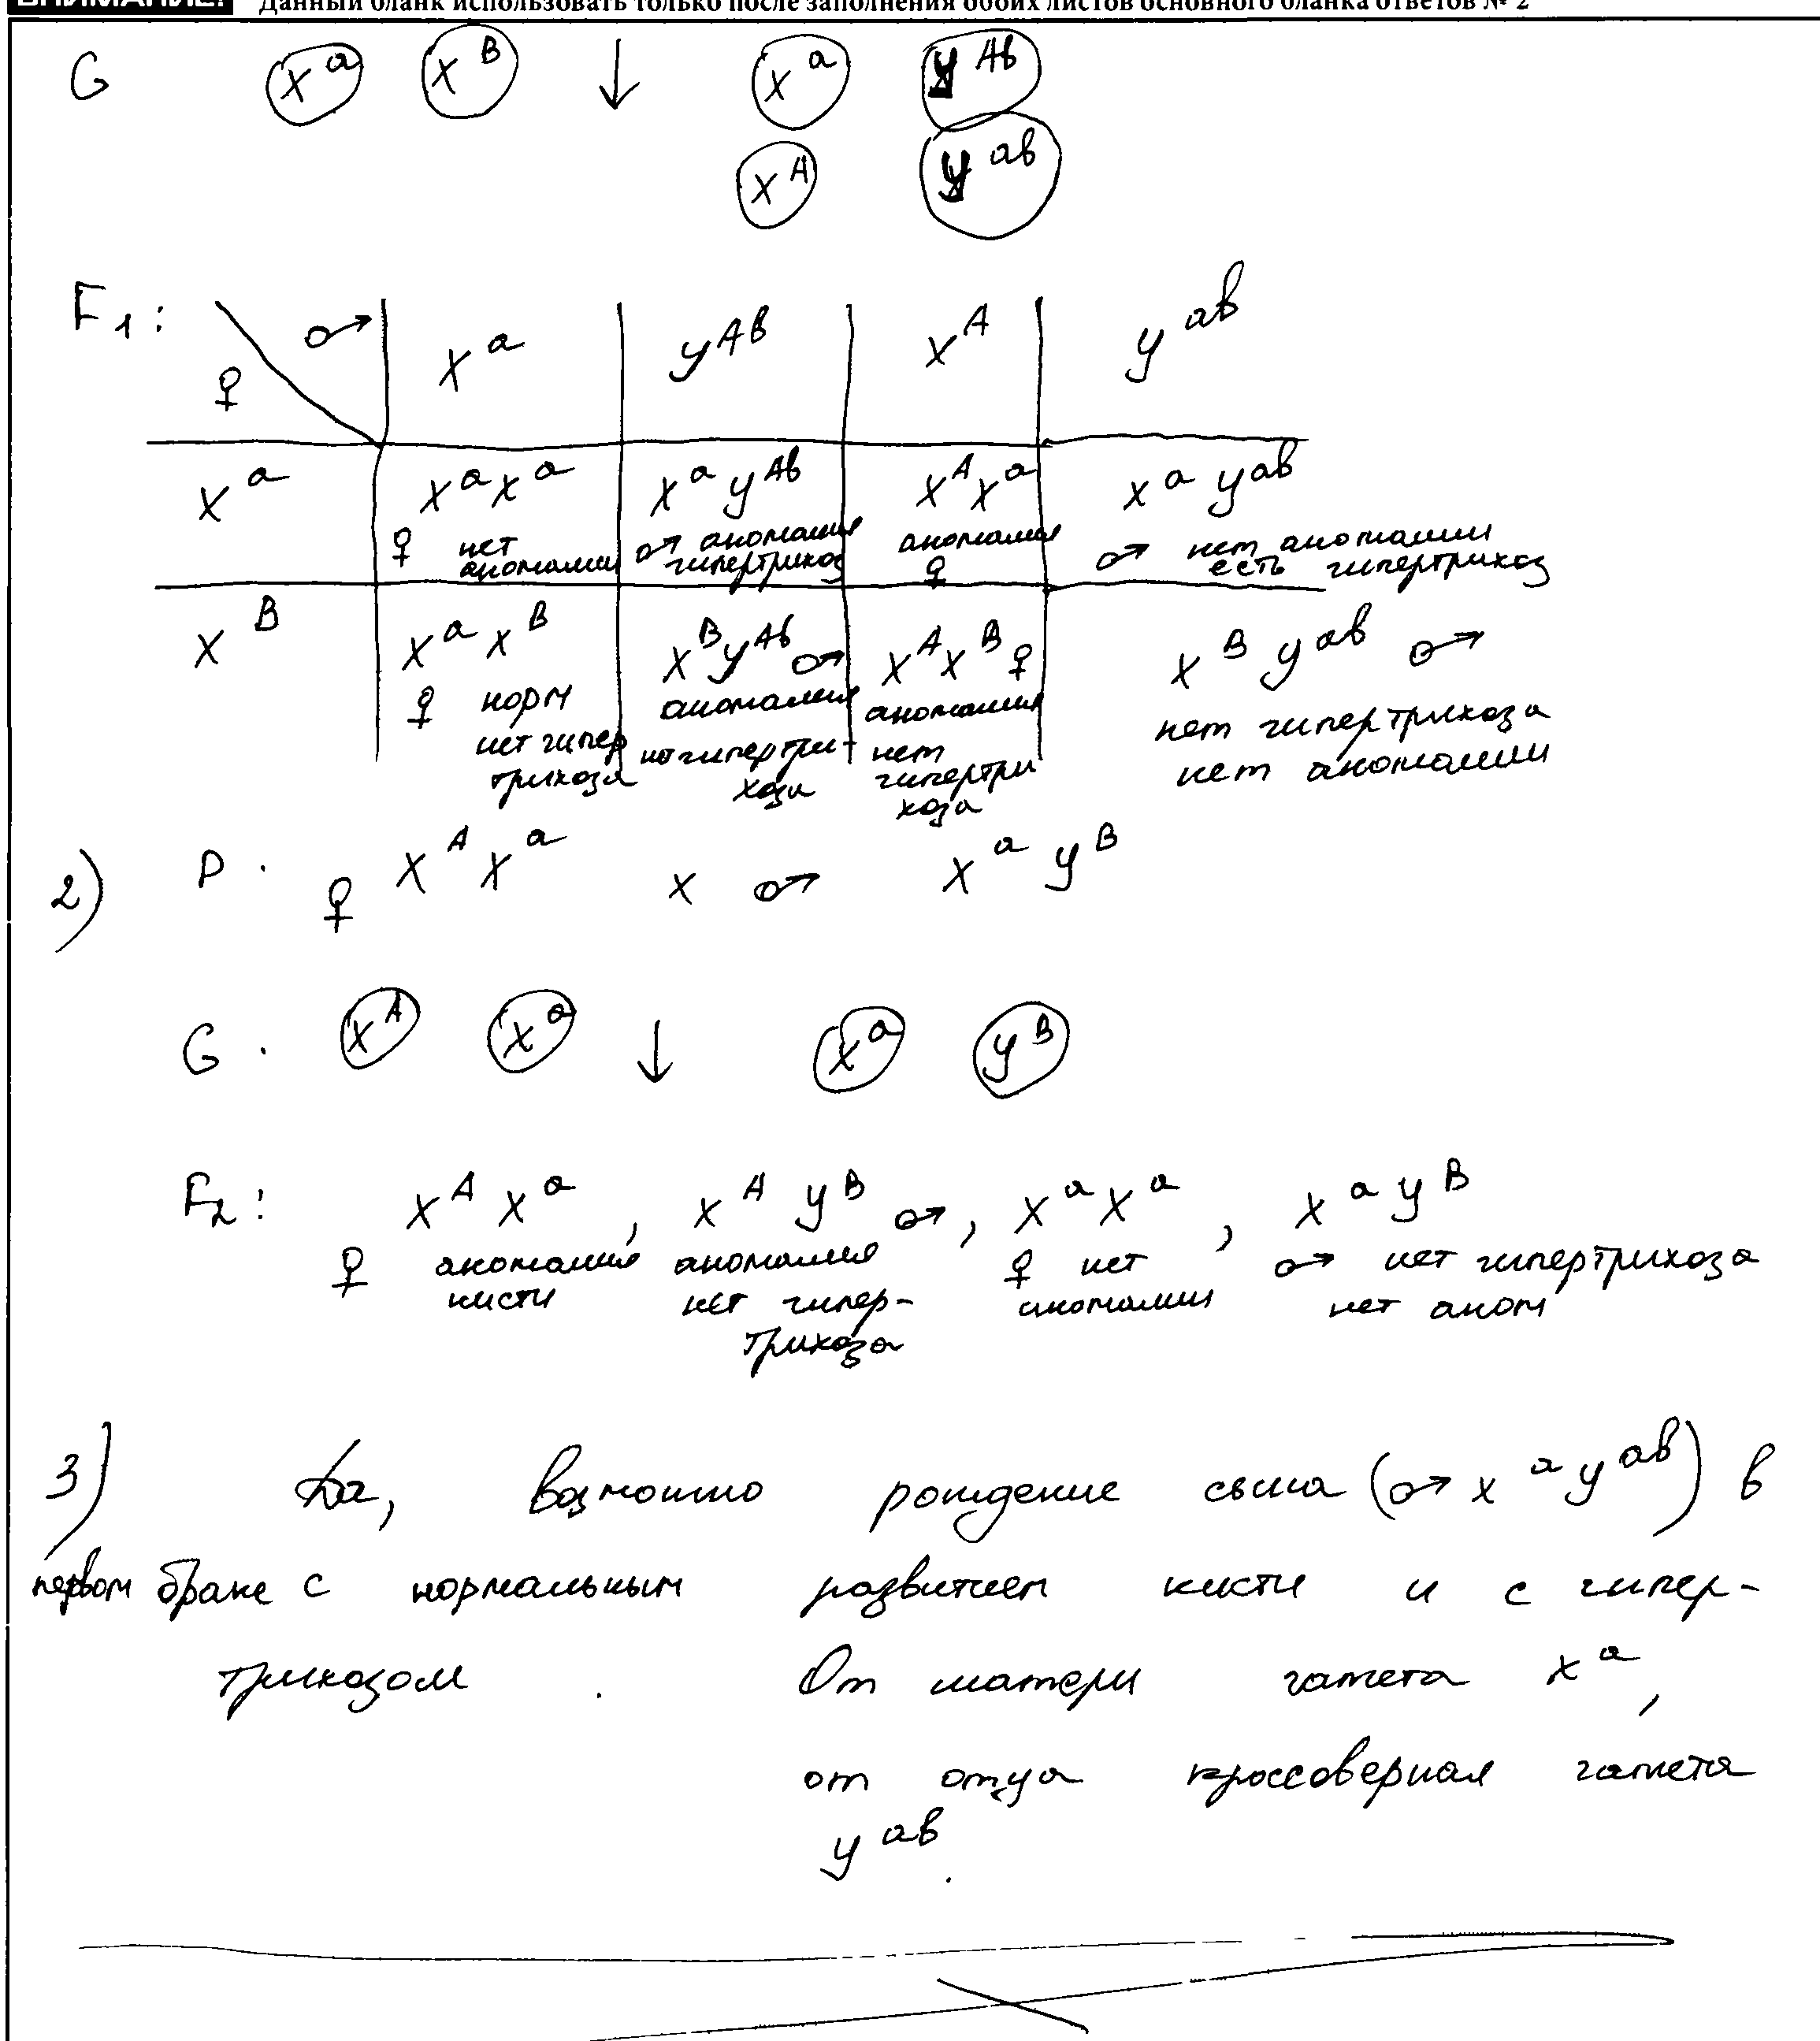 ВНИМАНИЕ! Данный бланк использовать только после заполнения обоих листов основного бланка ответов № 2
G X^a X^B ↓ X^a Y^Ab
X^A Y^ab
F1: ♀ ♂ X^a Y^Ab X^A Y^ab
X^a X^a X^a X^a Y^Ab X^A X^a X^a Y^ab
♀ нет аномалии ♂ аномалия гипертрихоз аномалия ♀ ♂ нет аномалии есть гипертрихоз
X^B X^a X^B X^B Y^Ab ♂ X^A X^B ♀ X^B Y^ab ♂
♀ норм нет гипертрихоза аномалия нет гипертрихоза аномалия нет гипертрихоза нет гипертрихоза нет аномалии
2) P. ♀ X^A X^a x ♂ X^a Y^B
G. X^A X^a ↓ X^a Y^B
F2: X^A X^a, X^A Y^B ♂, X^a X^a, X^a Y^B
♀ аномалия аномалия ♀ нет ♂ нет гипертрихоза
кисти нет гипер- аномалии нет аном
трихоза
3) Да, возможно рождение сына (♂ X^a Y^ab) в
первом браке с нормальным развитием кисти и с гипер-
трихозом. От матери гамета X^a,
от отца кроссоверная гамета
Y^ab.